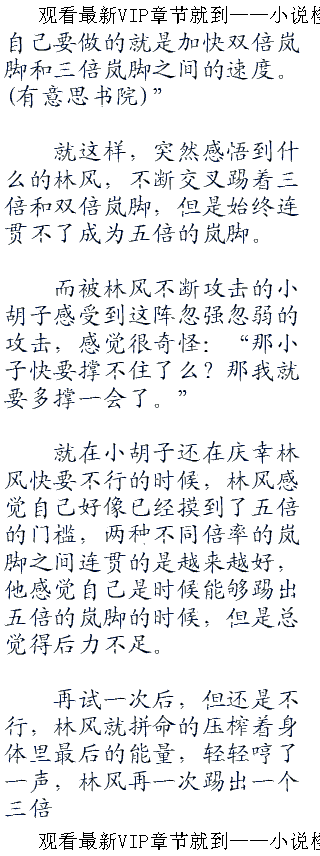 观看最新VIP章节就到——小说
自己要做的就是加快双倍岚
脚和三倍岚脚之间的速度。
(有意思书院)”
就这样，突然感悟到什
么的林风，不断交叉踢着三
倍和双倍岚脚，但是始终连
贯不了成为五倍的岚脚。
而被林风不断攻击的小
胡子感受到这阵忽强忽弱的
攻击，感觉很奇怪：“那小
子快要撑不住了么？那我就
要多撑一会了。”
就在小胡子还在庆幸林
风快要不行的时候，林风感
觉自己好像已经摸到了五倍
的门槛，两种不同倍率的岚
脚之间连贯的是越来越好，
他感觉自己是时候能够踢出
五倍的岚脚的时候，但是总
觉得后力不足。
再试一次后，但还是不
行，林风就拼命的压榨着身
体里最后的能量，轻轻哼了
一声，林风再一次踢出一个
三倍
观看最新VIP章节就到——小说